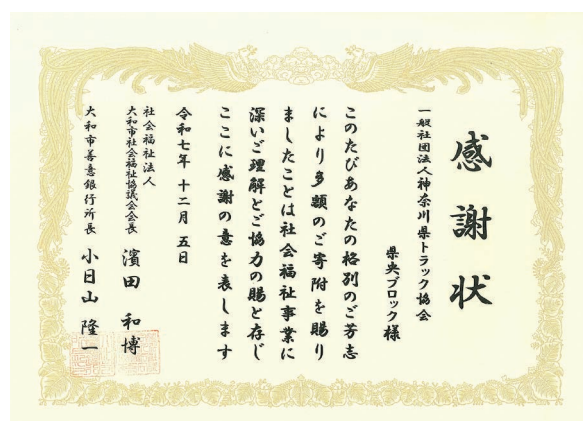 感謝状
一般社団法人神奈川県トラック協会
県央ブロック様
このたびあなたの格別のご芳志
により多額のご寄附を賜り
ましたことは社会福祉事業に
深いご理解とご協力の賜と存じ
ここに感謝の意を表します
令和七年十二月五日
社会福祉法人
大和市社会福祉協議会会長 濱田和博
大和市善意銀行所長 小日山隆一